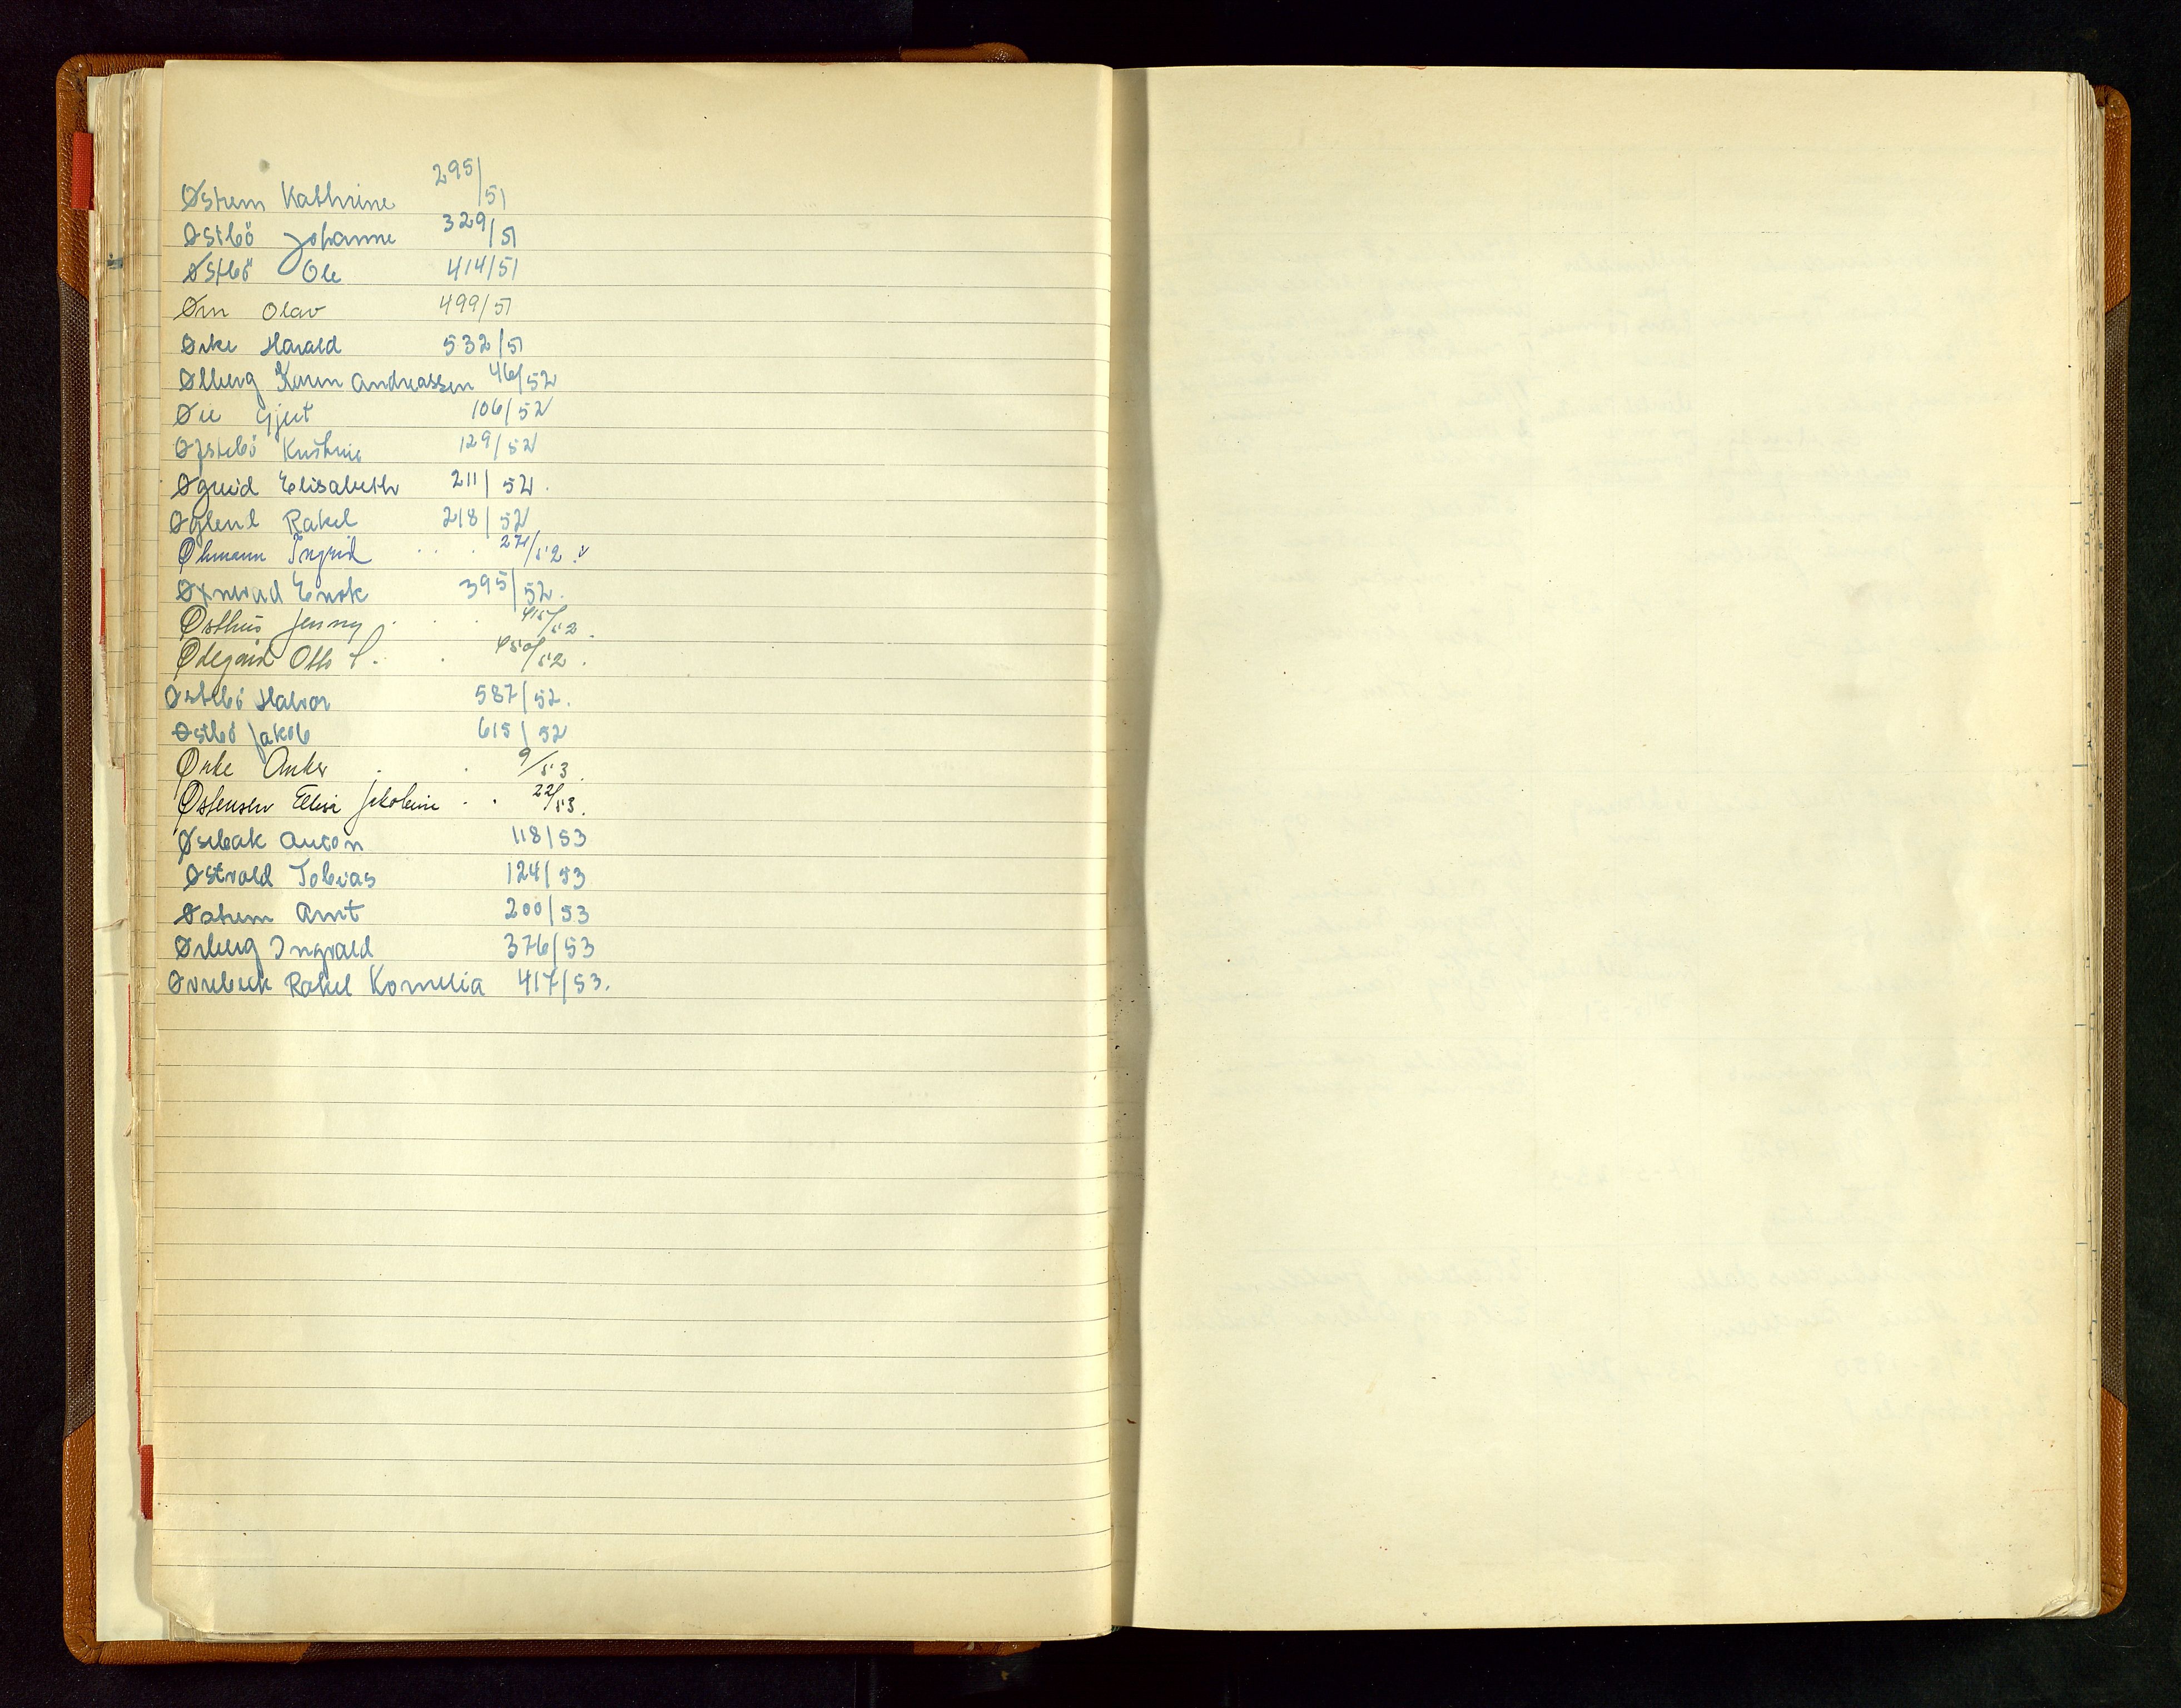 Østrem Kathrine 295/51
Østbö Johanne 329/51
Østbö Ole 414/51
Ørn Olav 499/51
Ørke Harald 532/51
Ølberg Karen Andreassen 46/52
Øie Gjert 106/52
Øfstebö Kristine 129/52
Øgreid Elisabeth 211/52.
Øglend Rakel 218/52
Øhmann Ingrid . . . 271/52.
Øxnevad Enok 395/52.
Østhus Jenny . . . 415/52.
Ødegård Otto . . 450/52.
Østebö Halvor 587/52.
Østbö Jakob 615/52
Ørke Anker . . 9/53.
Østensen Elise Jakobine . . 22/53.
Ørsbak Anton 118/53
Østvold Tobias 124/53
Østrem Arnt 200/53
Ørberg Ingvald 376/53
Rakel Kornelia 417/53.